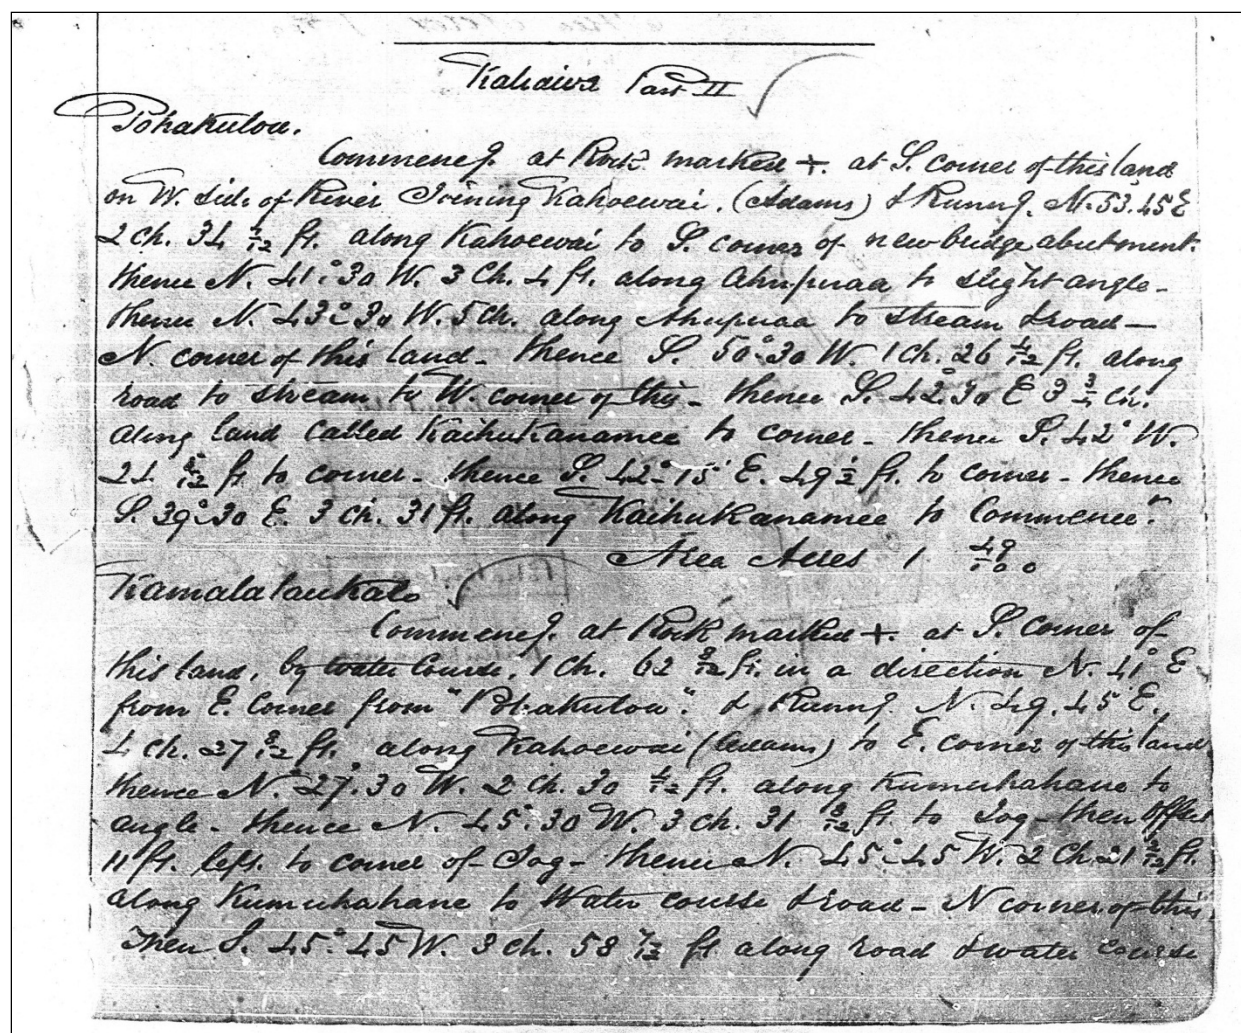 Kahaiwa Part II
Pohakuloa.
Commencg. at Rock marked +. at S. corner of this land
on W. side of River Joining Kahoewai. (Adams) & Runng. N. 53.45 E
2 ch. 34 2/12 ft. along Kahoewai to S. corner of new bridge abutment.
thence N. 41°.30 W. 3 Ch. 4 ft. along Ahupuaa to slight angle-
thence N. 43°30 W. 5 ch. along Ahupuaa to stream & road-
N. corner of this land- thence S. 50°.30 W. 1 ch. 26 4/12 ft. along
road to stream to W. corner of this- thence S. 42°.30 E 3 3/4 ch.
along land called Kaihukanamee to corner- thence S. 42° W.
24 8/12 ft to corner- thence S. 42°-15' E. 49 1/2 ft. to corner- thence
S. 39°30 E. 3 ch. 31 ft. along Kaihukanamee to Commence't.
Area Acres 1 49/100
Kamalalaukalo
Commencg. at Rock marked +. at S. corner of
this land, by water course, 1 ch. 62 8/12 ft. in a direction N. 41° E
from E. Corner from "Pohakuloa". & Runng. N. 49.45 E.
4 ch. 27 8/12 ft. along Kahoewai (Adams) to E. corner of this land
thence N. 27°.30 W. 2 ch. 30 4/12 ft. along Kumuhahane to
angle- thence N. 45°.30 W. 3 ch. 31 8/12 ft. to Jog- then Offset
11 ft. left. to corner of Jog- thence N. 45°.45 W. 2 Ch. 21 2/12 ft.
along Kumuhahane to Water course & road- N corner of this,
Then S. 45°.45 W. 3 ch. 58 7/12 ft along road & water course